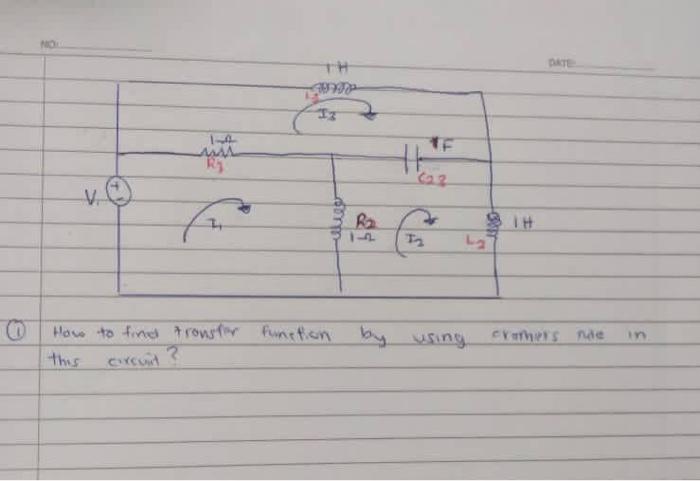 NO:
DATE:
1 H
L3
I3
1Ω
R1
1F
C23
V.
+
-
I1
R2
1Ω
I2
L2
1H
① How to find transfer function by using cramers rule in
this circuit?